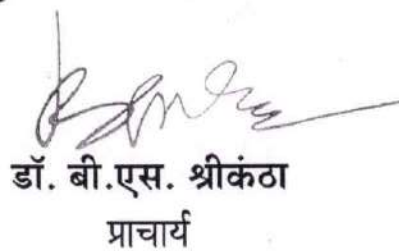 डॉ. बी.एस. श्रीकंठा
प्राचार्य